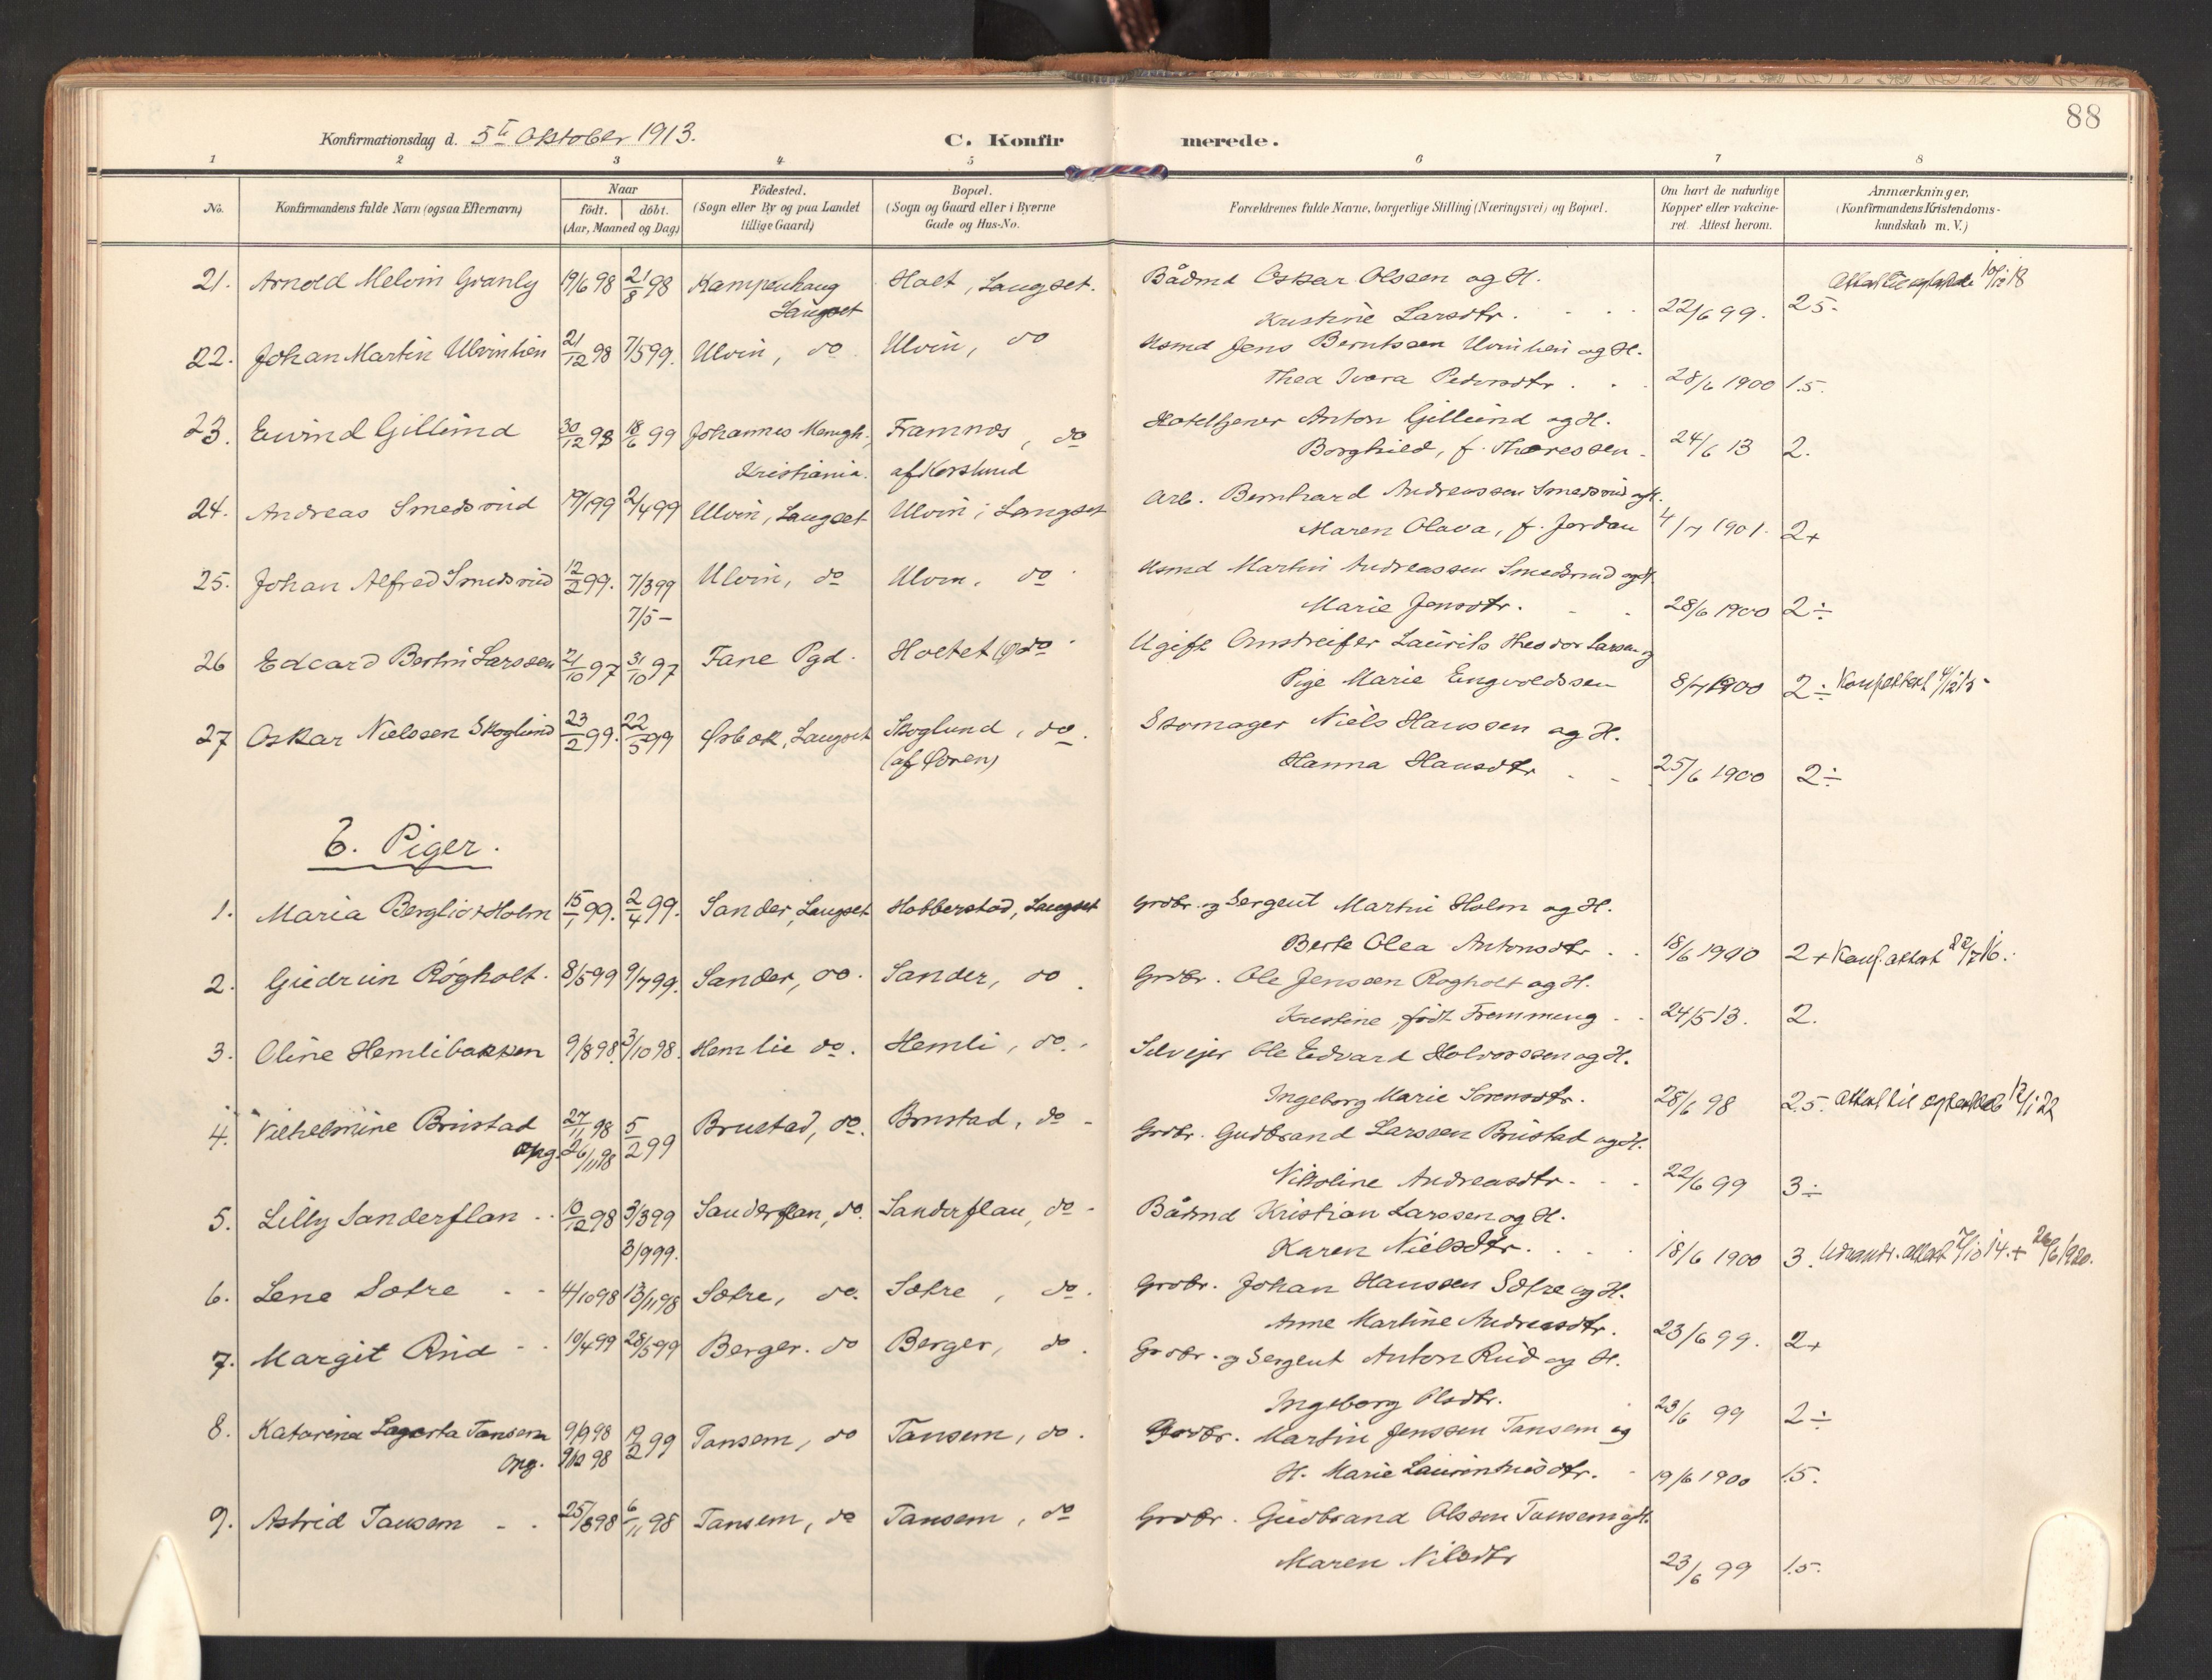 88
Konfirmationsdag d. 5te Oktober 1913. C. Konfir merede.
1 2 3 4 5 6 7 8
No. Konfirmandens fulde Navn (ogsaa Efternavn) Naar født. døbt. (Aar, Maaned og Dag) Fødested. (Sogn eller By og paa Landet tillige Gaard) Bopæl. (Sogn og Gaard eller i Byerne Gade og Hus-No. Forældrenes fulde Navne, borgerlige Stilling (Næringsvei) og Bopæl. Om havt de naturlige Kopper eller vakcineret. Attest herom. Anmærkninger. (Konfirmandens Kristendomskundskab m. V.)
21. Arnold Melvin Granly 19/6 98 21/8 98 Kampenhaug Holt, Langset. Baadmd Oskar Olssen og H.
Langset Kristine Larsdtr. 22/6 99. 2.5.
22. Johan Martin Ulvinhien 21/12 98 7/5 99. Ulvin, do Ulvin, do Usmd Jens Berntssen Ulvinhein og H.
Thea Ivara Pedersdtr. 28/6 1900 1.5.
23. Eivind Gillund 30/12 98 18/6 99 Johannes Menigh. Framnæs, do Hoteltjener Anton Gillund og H.
Kristiania. af Korslund Borghild, f. Thoressen 24/6 13 2.
24. Andreas Smedsrud 19/1 99 2/4 99 Ulvin, Langset Ulvin, Langset Arb. Bernhard Andreassen Smedsrud og H.
Maren Olava, f. Jordau 4/7 1901. 2+
25. Johan Alfred Smedsrud 12/2 99. 7/3 99 Ulvin, do Ulvin, do Usmd Martin Andreassen Smedsrud og H.
7/5 — Marie Jensdtr. 28/6 1900 2÷
26 Edvard Bertin Larssen 21/10 97 31/10 97 Fane Pgd. Holtet (ø) do Ugift Omstreifer Laurits Theodor Larsen og
Pige Marie Engvoldssen 8/7 1900 2÷ Konf. attest 4/12 15
27 Oskar Nielssen Skoglund 23/2 99. 22/5 99 Ørbæk, Langset Skoglund, do. Skomager Niels Hanssen og H.
(af Øoren) Hanna Hansdtr 25/6 1900 2÷
b. Piger.
1. Maria Bergliot Holm 15/1 99. 2/4 99. Sander, Langset Habberstad, Langset Grdbr. og Sergent Martin Holm og H.
Berte Olea Antonsdtr. 18/6 1900 2+ Konf. attest 22/7 16.
2. Gudrun Røgholt. 8/5 99 9/7 99. Sander, do. Sander, do. Grdbr. Ole Jenssen Røgholt og H.
Kristine, født Fremming 24/5 13. 2.
3. Oline Hemlibakken 9/8 98. 3/10 98. Hemlie do. Hemli, do. Selvejer Ole Edvard Halvorssen og H.
Ingeborg Marie Sørensdtr. 28/6 98 2.5. Attest til ægteskab 12/1 22
4. Vilhelmine Brustad 27/11 98 5/2 99 Brustad, do. Brustad, do Grdbr. Gudbrand Larssen Brustad og H.
Opg. 26/11 98 Nikoline Andreasdtr. 22/6 99 3÷
5. Lilly Sanderflan 10/12 98 3/3 99 Sanderflan, do. Sanderflan, do Baadmd Kristian Larssen og H.
3/9 99. Karen Nielsdtr. 18/6 1900 3. Udvandr. attest 7/10 14. + 26/6 1920.
6. Lene Sætre 4/10 98 13/11 98 Sætre, do. Sætre, do. Grdbr. Johan Hanssen Sætre og H.
Anne Martine Andreasdtr. 23/6 99. 2+
7. Margit Rud 10/4 99 28/5 99 Berger. do Berger, do. Grdbr. og Sergent Anton Rud og H.
Ingeborg Olsdtr. 23/6 99 2÷
8. Katarina Lagerta Tansem 9/9 98 19/2 99 Tansem, do Tansem, do. Grdbr. Martin Jenssen Tansem og
Opg. 9/12 98 H. Marie Laurentiusdtr. 19/6 1900 1.5.
9. Astrid Tansem 25/8 98 6/11 98 Tansem, do Tansem, do Grdbr. Gudbrand Olssen Tansem og H.
Maren Nilsdtr 23/6 99 1.5.